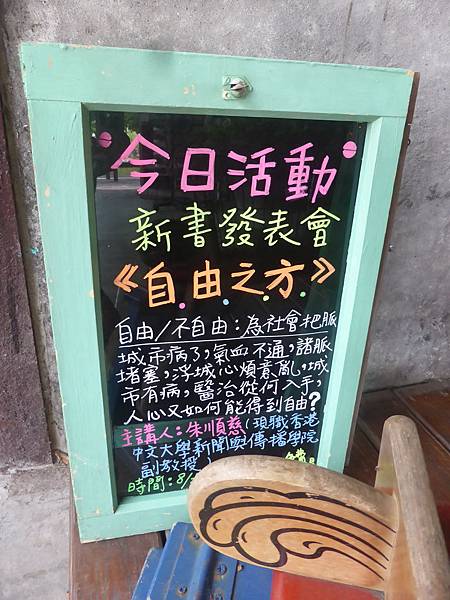 今日活動
新書發表會
《自由之方》
自由/不自由:為社會把脈
城市病了,氣血不通,諸脈
堵塞,浮城心煩意亂,城
市有病,醫治從何入手,
人心又如何能得到自由?
主講人:朱順慈(現職香港
中文大學新聞與傳播學院
副教授
時間:8/